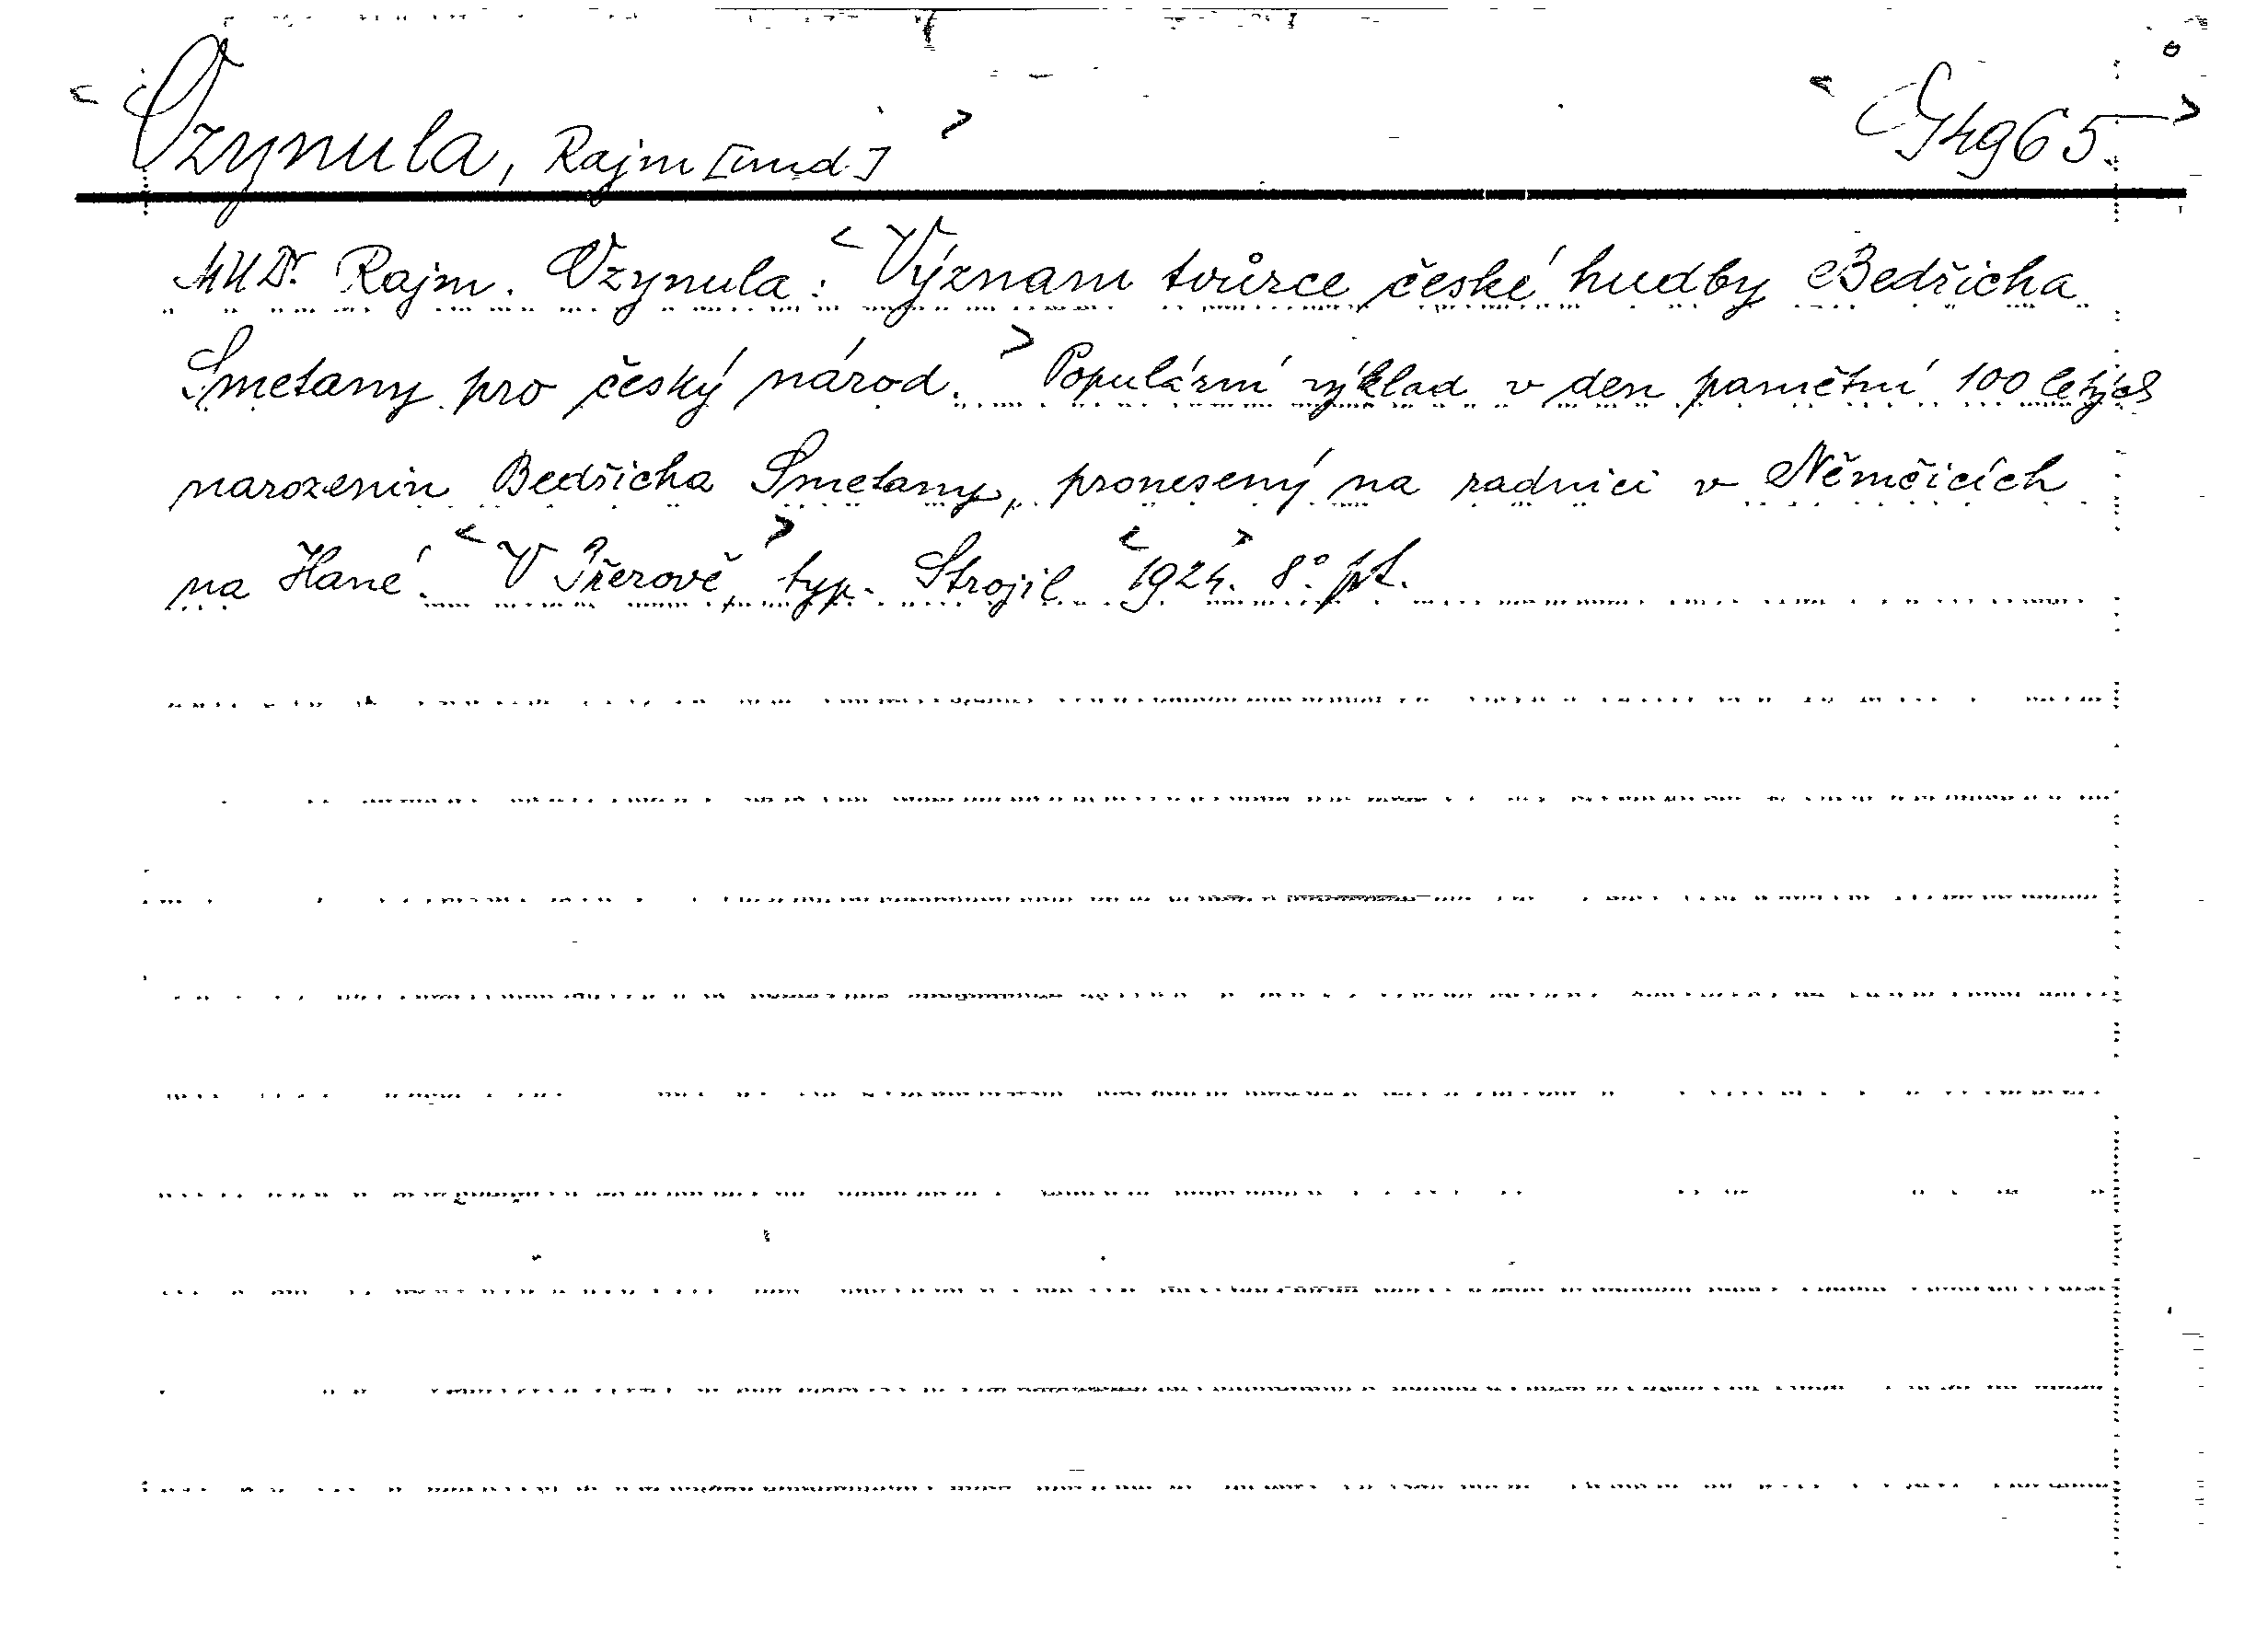 < Vzynula, Rajm[und] > < G 4965. >
MUDr. Rajm. Vzynula: < Význam tvůrce české hudby Bedřicha
Smetany pro český národ. > Populární výklad v den památní 100 letých
narozenin Bedřicha Smetany, pronesený na radnici v Němčicích
na Hané. < V Přerově, > typ. Strojil < 1924. > 8°. pt.